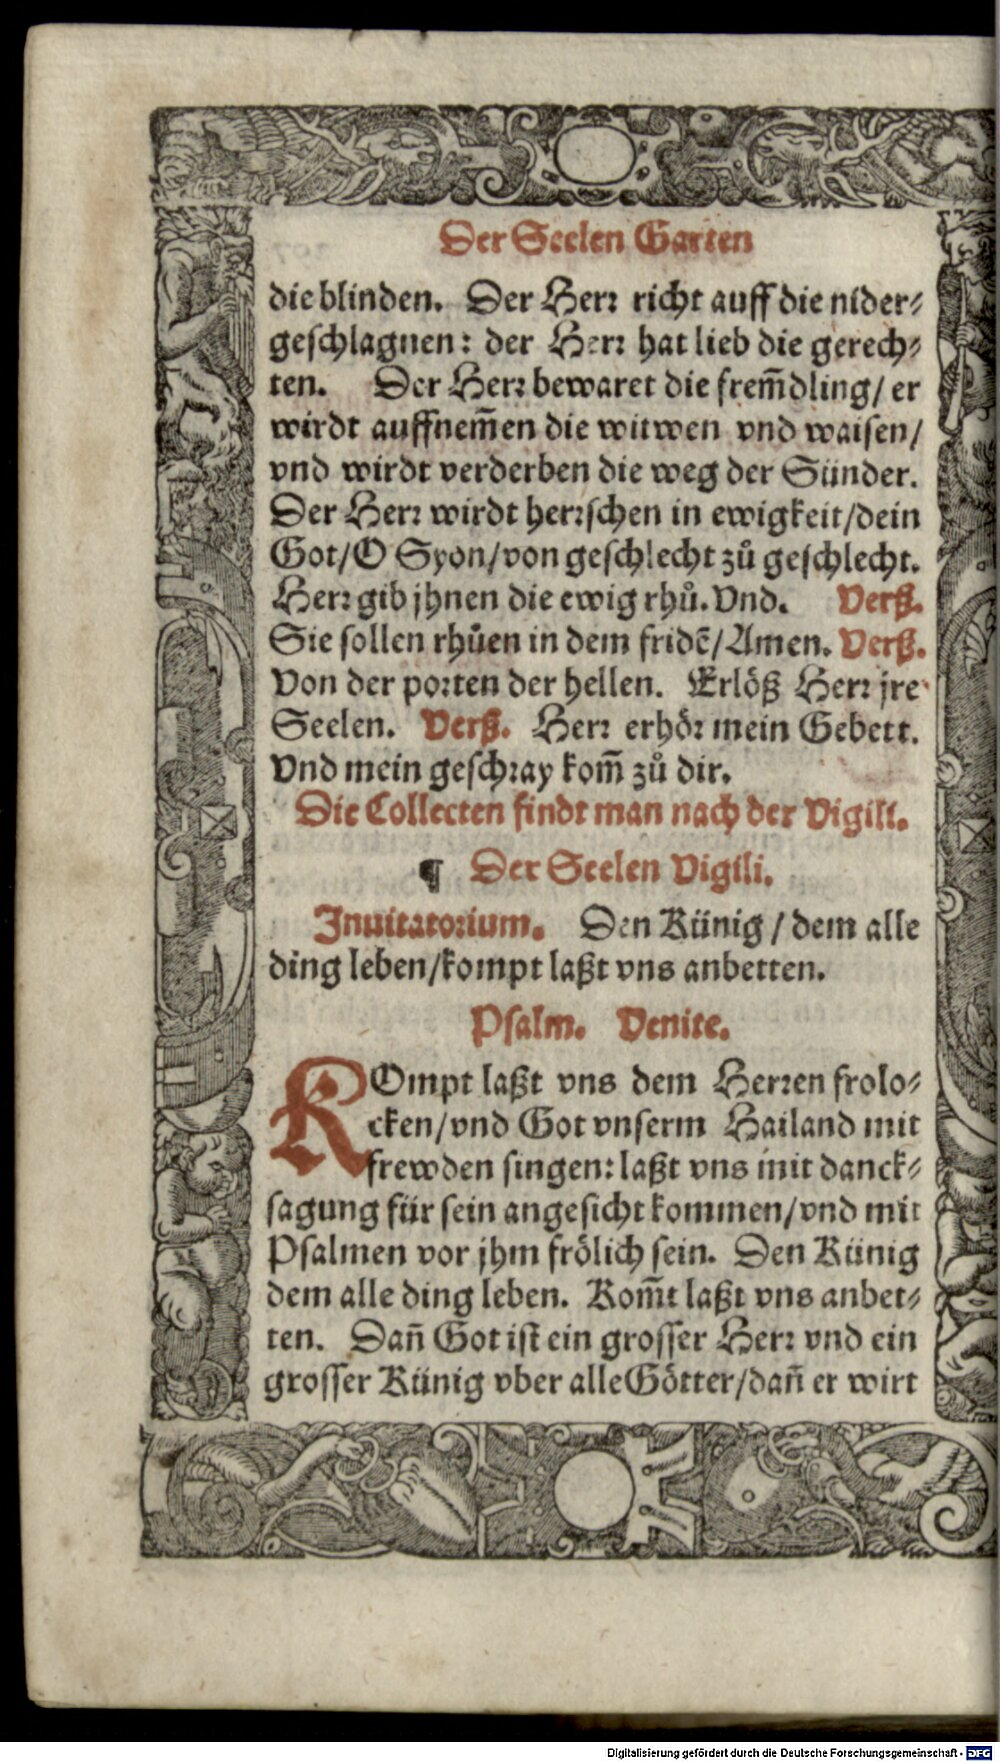 Der Seelen Garten
die blinden. Der Herr richt auff die nider⸗
geschlagnen: der Herr hat lieb die gerech⸗
ten. Der Herr bewaret die frem̃dling/ er
wirdt auffnem̃en die witwen vnd waisen/
vnd wirdt verderben die weg der Sünder.
Der Herr wirdt herrschen in ewigkeit/dein
Got/O Syon/von geschlecht zů geschlecht.
Herr gib jhnen die ewig rhů. Vnd. Verß.
Sie sollen rhůen in dem fridẽ/Amen. Verß.
Von der porten der hellen. Erlöß Herr jre
Seelen. Verß. Herr erhör mein Gebett.
Vnd mein geschray kom̃ zů dir.
Die Collecten findt man nach der Vigili.
¶ Der Seelen Vigili.
Inuitatorium. Den Künig / dem alle
ding leben/kompt laßt vns anbetten.
Psalm. Venite.
KOmpt laßt vns dem Herren frolo⸗
cken/vnd Got vnserm Hailand mit
frewden singen: laßt vns mit danck⸗
sagung für sein angesicht kommen/vnd mit
Psalmen vor jhm frölich sein. Den Künig
dem alle ding leben. Kom̃t laßt vns anbet⸗
ten. Dañ Got ist ein grosser Herr vnd ein
grosser Künig vber alle Götter/dañ er wirt
Digitalisierung gefördert durch die Deutsche Forschungsgemeinschaft - DFG